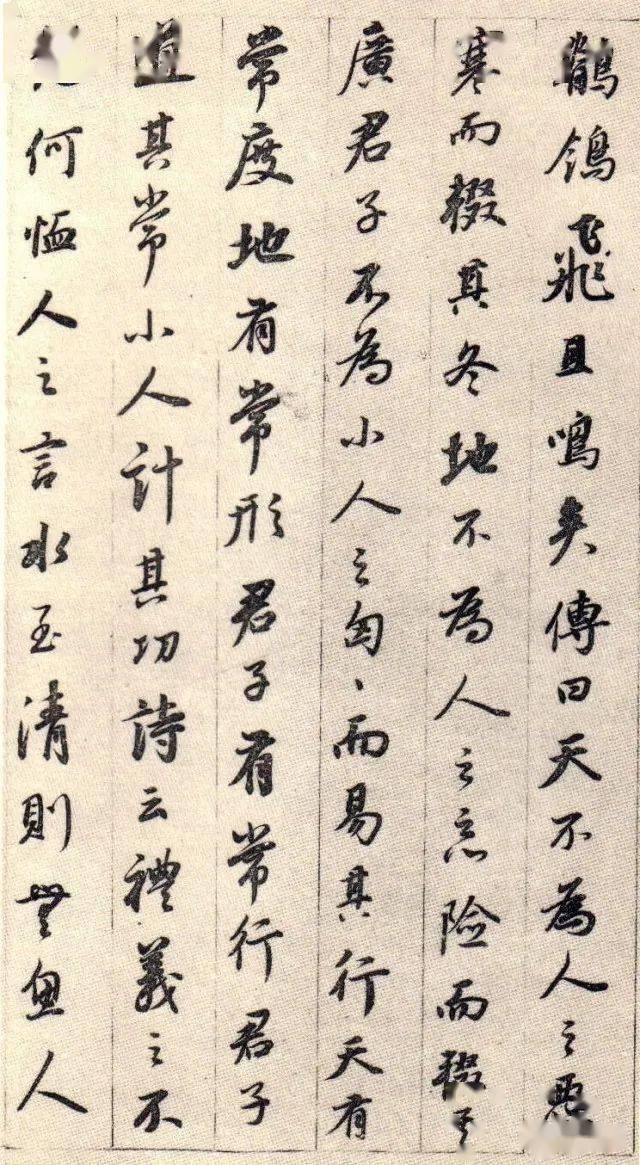 鶺鴒飛且鳴矣傳曰天不為人之惡
寒而輟其冬地不為人之惡險而輟其
廣君子不為小人之匈〻而易其行天有
常度地有常形君子有常行君子
道其常小人計其功詩云禮義之不
何恤人之言水至清則無魚人